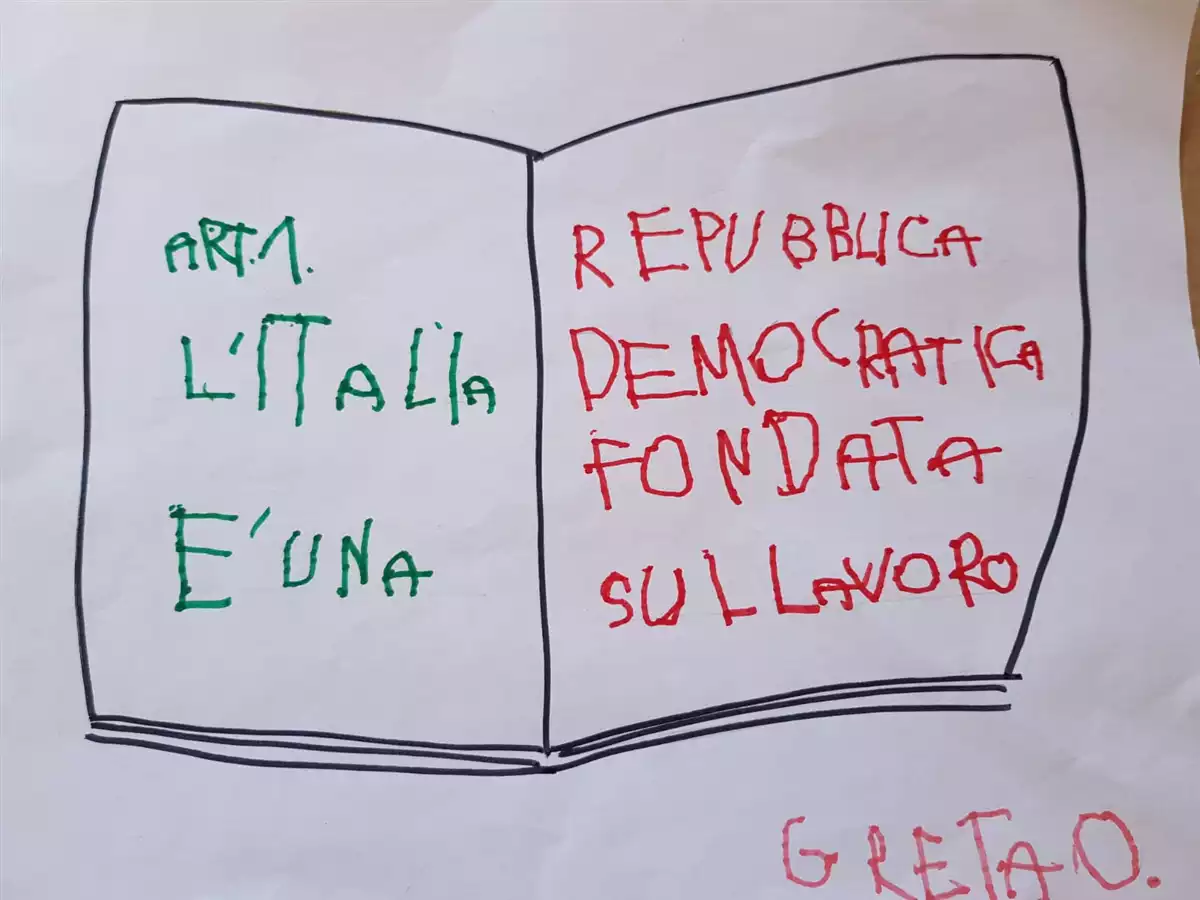 ART.1.
L'ITALIA
E' UNA
REPUBBLICA
DEMOCRATICA
FONDATA
SUL LAVORO
GRETA O.